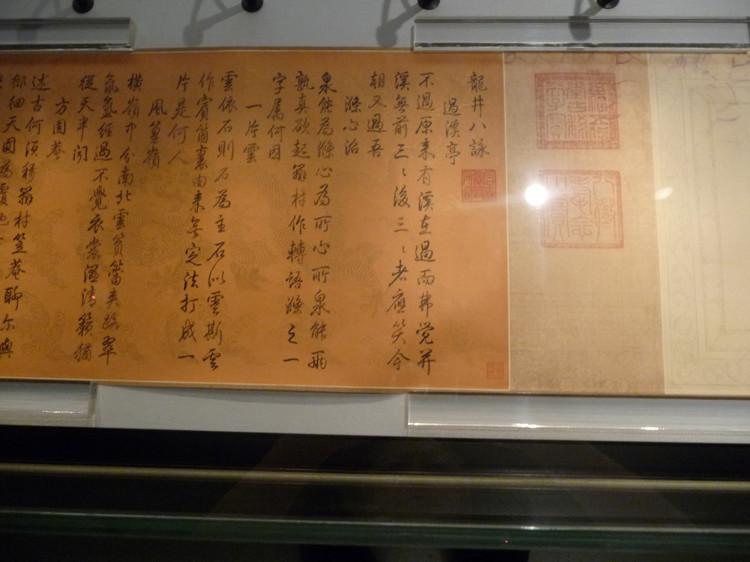 龍井八詠
過溪亭
不過原來有溪在過而弗覺并
溪無前三〻後三〻老應笑今
朝又過吾
滌心沼
泉能為滌心為所心所泉能兩
孰真欲起翁村作轉語滌之一
字属何因
一片雲
雲依石則石為主石以雲斯雲
作賓箇裏由来無定法打成一
片是何人
風篁嶺
橫嶺中分南北雲篔簹夾路翠
氤氳經過不覺衣裳濕清籟猶
從天半聞
方圓菴
古何須移翁村笠菴聊尔與
細天圓為覆